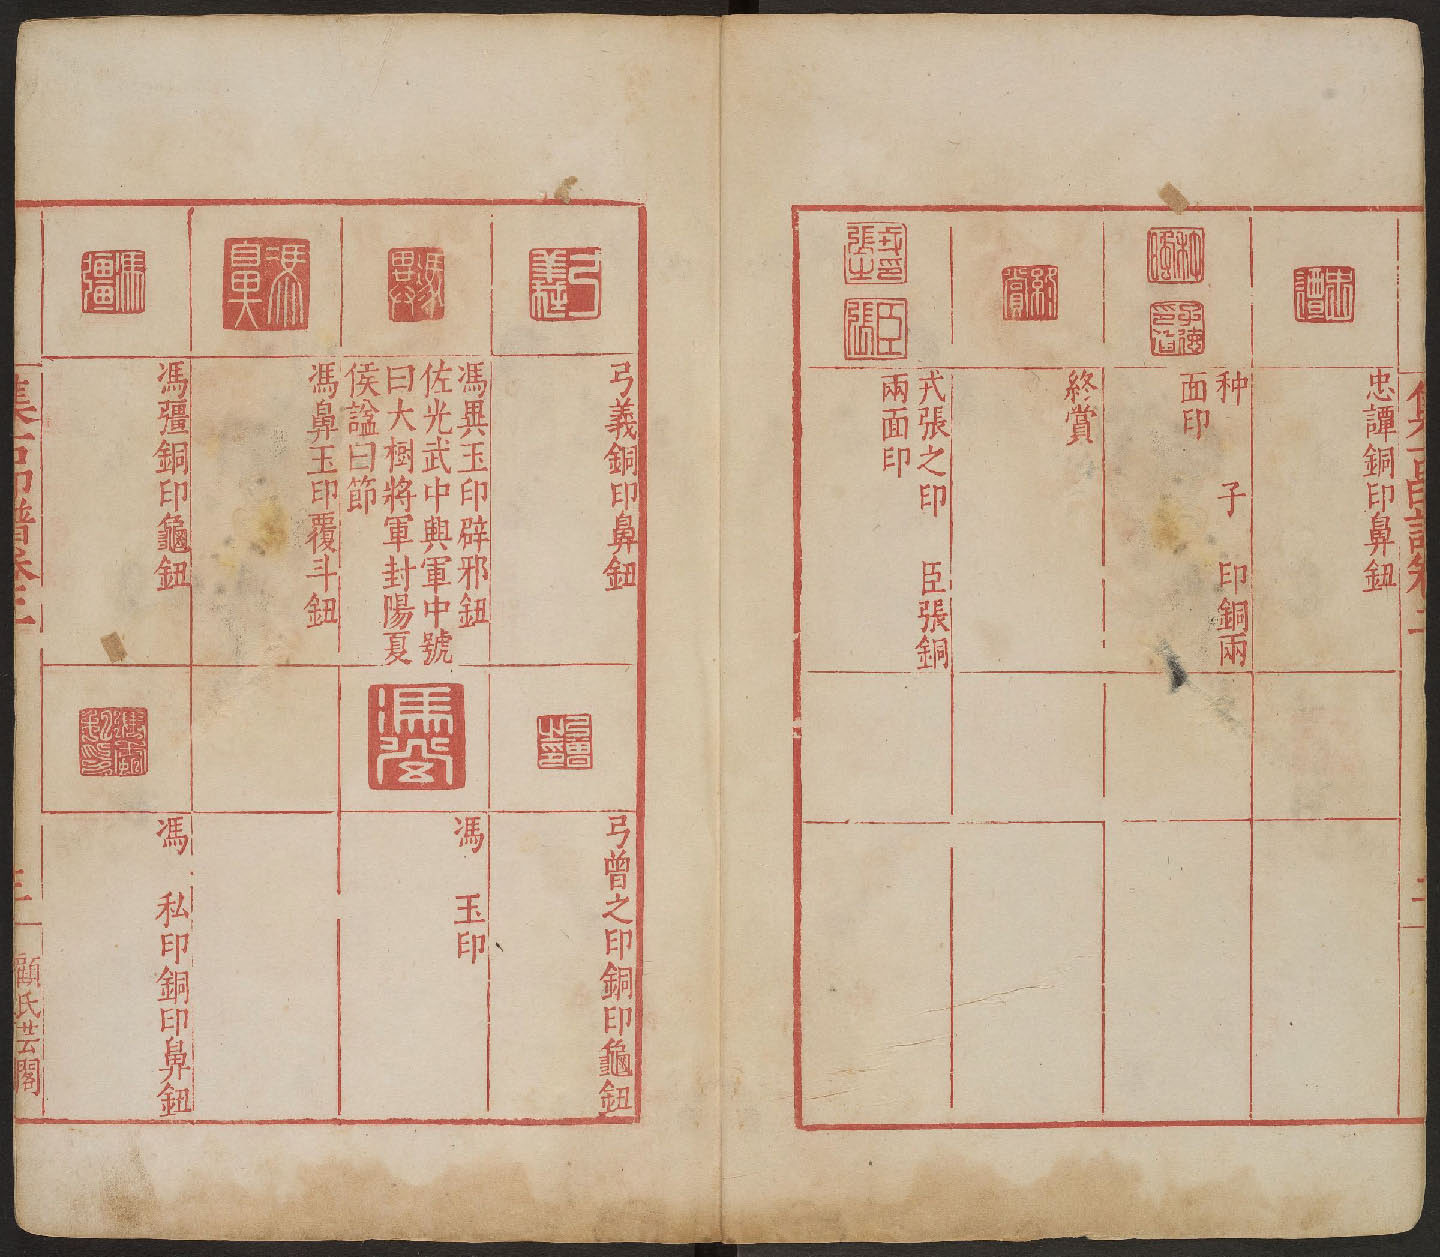 忠譚銅印鼻鈕
种　子　印銅兩
面印
終賞
戎張之印　臣張銅
兩面印
弓義銅印鼻鈕
馮異玉印辟邪鈕
佐光武中興軍中號
曰大樹將軍封陽夏
侯諡曰節
馮鼻玉印覆斗鈕
馮彊銅印龜鈕
弓曾之印銅印龜鈕
馮　玉印
馮　私印銅印鼻鈕
集古印譜卷三
三
顧氏芸閣